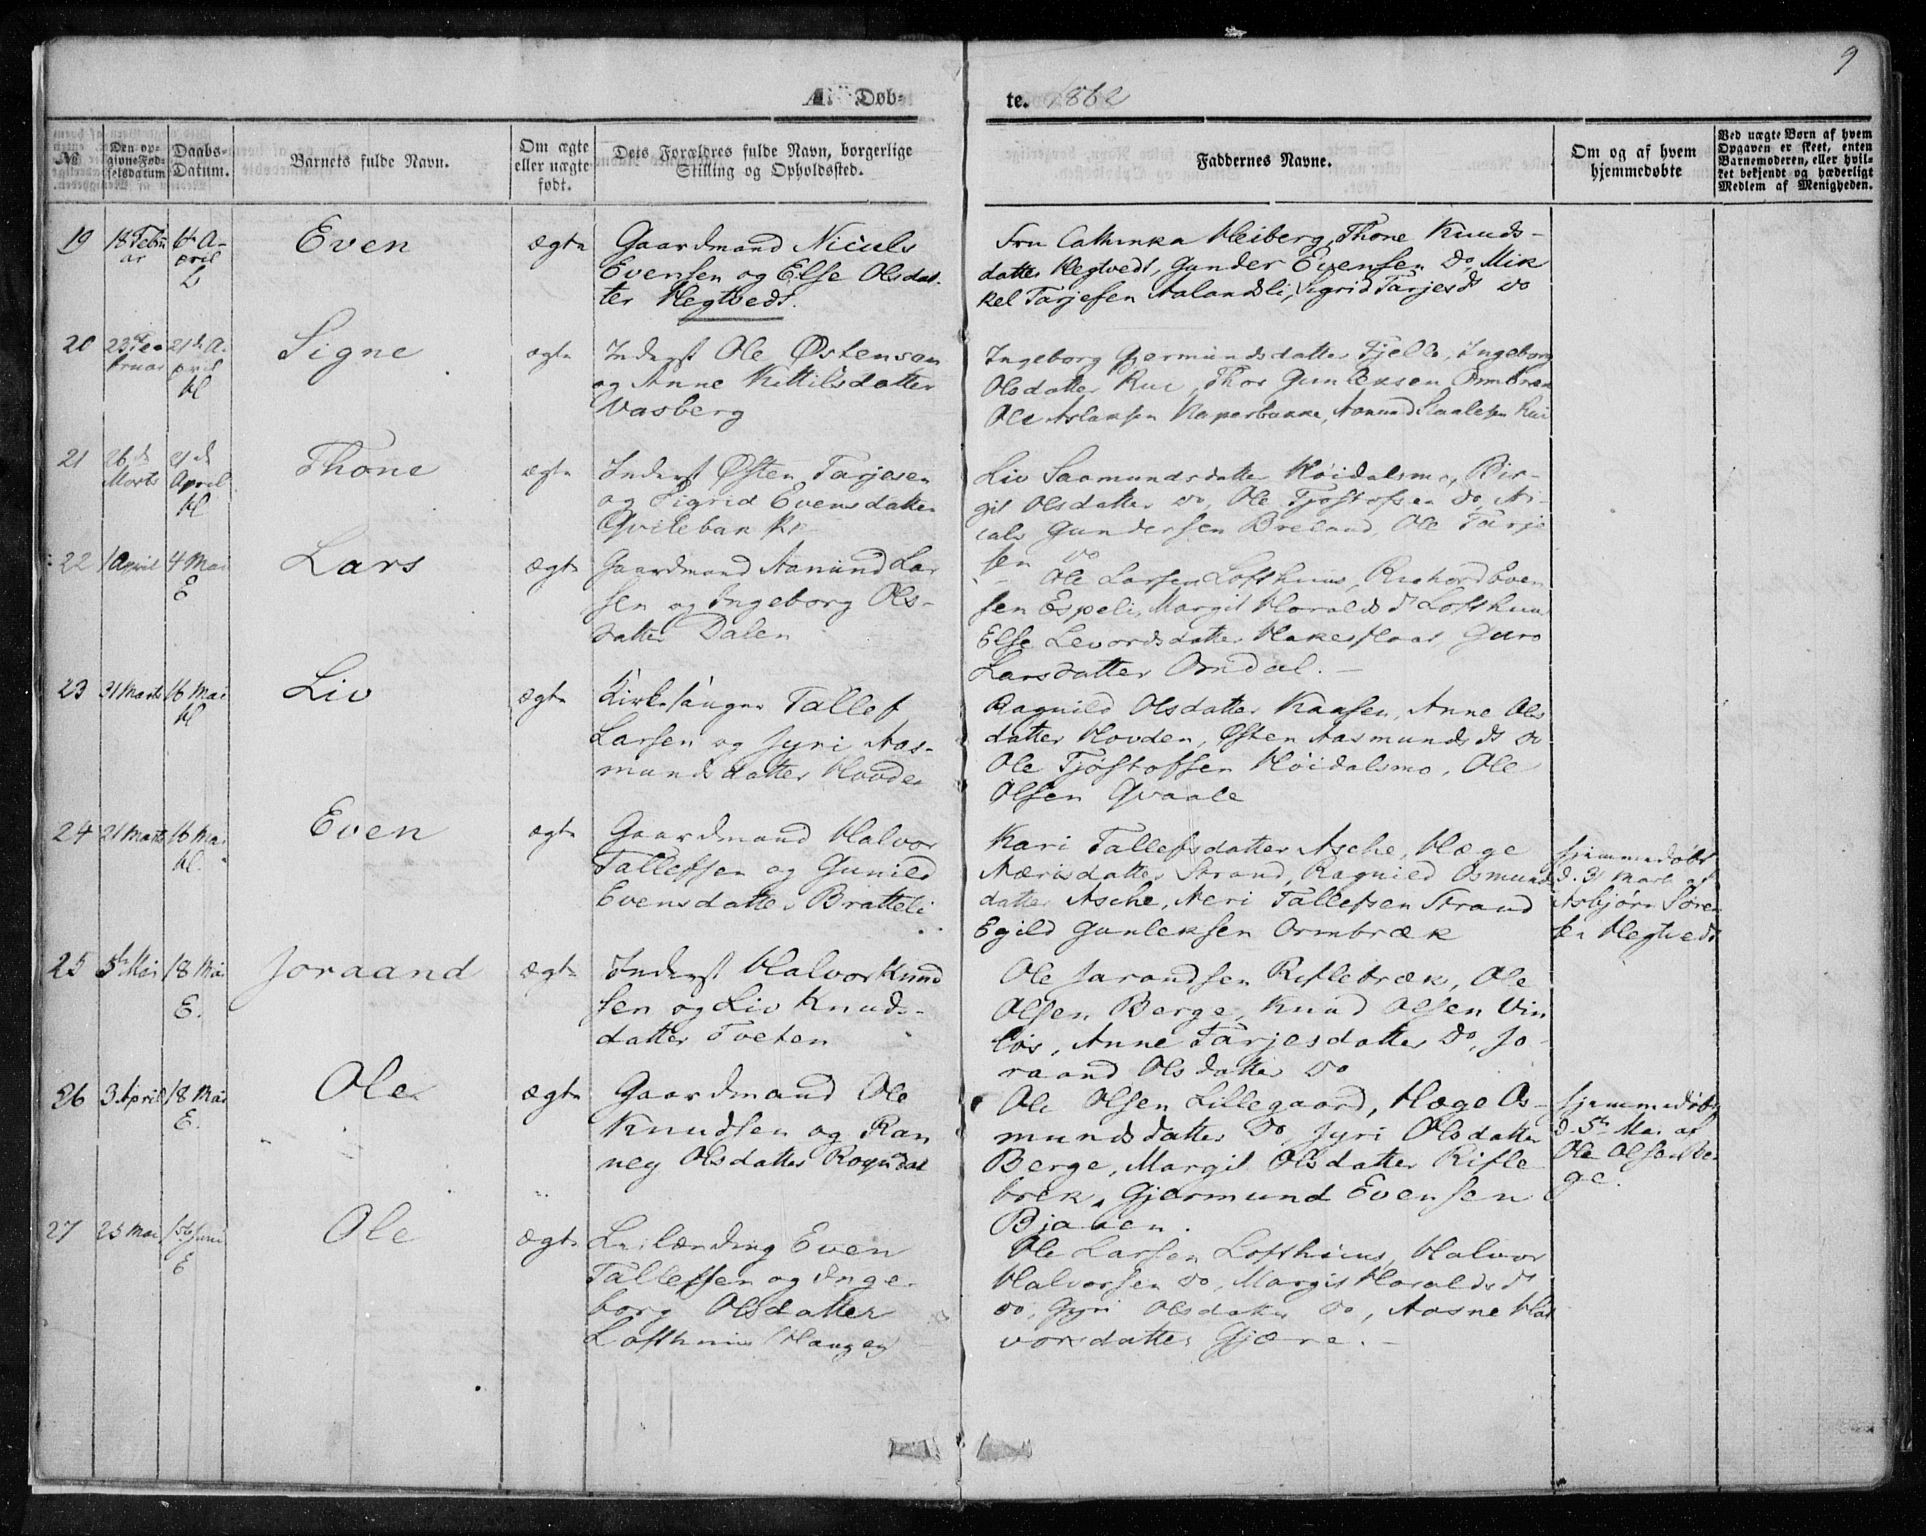 9
A. Døb-
te. 1862
No
Den op-
givne Fød-
selsdatum
Daabs-
Datum.
Barnets fulde Navn.
Om ægte
eller uægte
født.
Dets Forældres fulde Navn, borgerlige
Stilling og Opholdssted.
Faddernes Navne.
Om og af hvem
hjemmedøbte
Ved uægte Børn af hvem
Opgaven er skeet, enten
Barnemoderen, eller hvil-
ket bekjendt og hæderligt
Medlem af Menigheden.
19
18 Febru
ar
A-
pril
L
Even
ægte
Gaardmand Niculs
Evensen og Else Olsdat-
ter Hegtvedt.
Fru Cathinka Heiberg, Thone Knuds-
datter Hegtvedt, Gunder Evensen Do, Mik
kel Tarjesen Aalandsli, Sigrid Tarjesd Do
20
23de Fe
bruar
21de A-
pril
Hl
Signe
ægte
Inderst Ole Østensen
og Anne Kittilsdatter
Vasberg
Ingeborg Gjermundsdatter Fjelle, Ingeborg
Olsdatter Rui, Thor Gunleksen Ormbræk
Ole Aslaksen Kaparbakke, Aanund Rui
21
26de
Marts
21de
April
Hl
Thone
ægte
Inderst Østen Tarjesen
og Sigrid Evensdatter
Qvilebæk
Liv Saamundsdatter Høidalsmo, Bir-
git Olsdatter Do, Ole Tjøstofsen Do, Ni-
culs Gundersen Breland, Ole Tarje
sen Do
22
1 April
4 Mai
E
Lars
ægte
Gaardmand Aanund Lar
sen og Ingeborg Ols-
datter Dalen
Ole Larsen Lofthuus, Rikhord Even
sen Espeli, Margit Haralds d Lofthuus
Else Levordsdatter Hakeskaar, Guro
Larsdatter Omdal. -
23
31 Marts
16 Mai
Hl
Liv
ægte
Kirkesanger Tallef
Larsen og Jyri Aas-
mundsdatter Hovden
Ragnild Olsdatter Kaasen, Anne Ols
datter Hovden, Østen Aasmunds Do
Ole Tjøstofsen Høidalsmo, Ole
Olsen Qvaale
24
21 Marts
16 Mai
Hl.
Even
ægte
Gaardmand Halvor
Tallefsen og Gunild
Evensdatter Bratteli
Kari Tallefsdatter Asche, Hæge
Nærisdatter Strand, Ragnild Osmunds
datter Asche, Neri Tallefsen Strand
Egild Gunleksen Ormbræk
hjemmedøbt
d. 31 Marts af
Asbjørn Søren
sen Hegtvedt
25
5te Mai
18 Mai
E.
Joraand
ægte
Inderst Halvor Knud
sen og Liv Knuds-
datter Tveten
Ole Jarandsen Riflebræk, Ole
Olsen Berge, Knud Olsen Vin
løs, Anne Tarjesdatter Do, Jo-
raand Olsdatter Do
26
3. April
18 Mai
E.
Ole
ægte
Gaardmand Ole
Knudsen og Ran
neg Olsdatter Rogndal
Ole Olsen Lillegaard, Hæge Os-
mundsdatter Do, Jyri Olsdatter
Berge, Margit Olsdatter Rifle
brek, Gjermund Evensen
Bjaaen.
hjemmedøbt
d. 5te Mai af
Ole Olsen Ber
ge.
27
25 Mai
15de Juni
E
Ole
ægte
Leilænding Even
Tallefsen og Inge-
borg Olsdatter
Lofthuus Haugen
Ole Larsen Lofthuus, Halvor
Halvorsen Do, Margit Haralds d
Do, Gyri Olsdatter Do, Aasne Hal
vorsdatter Gjære. -